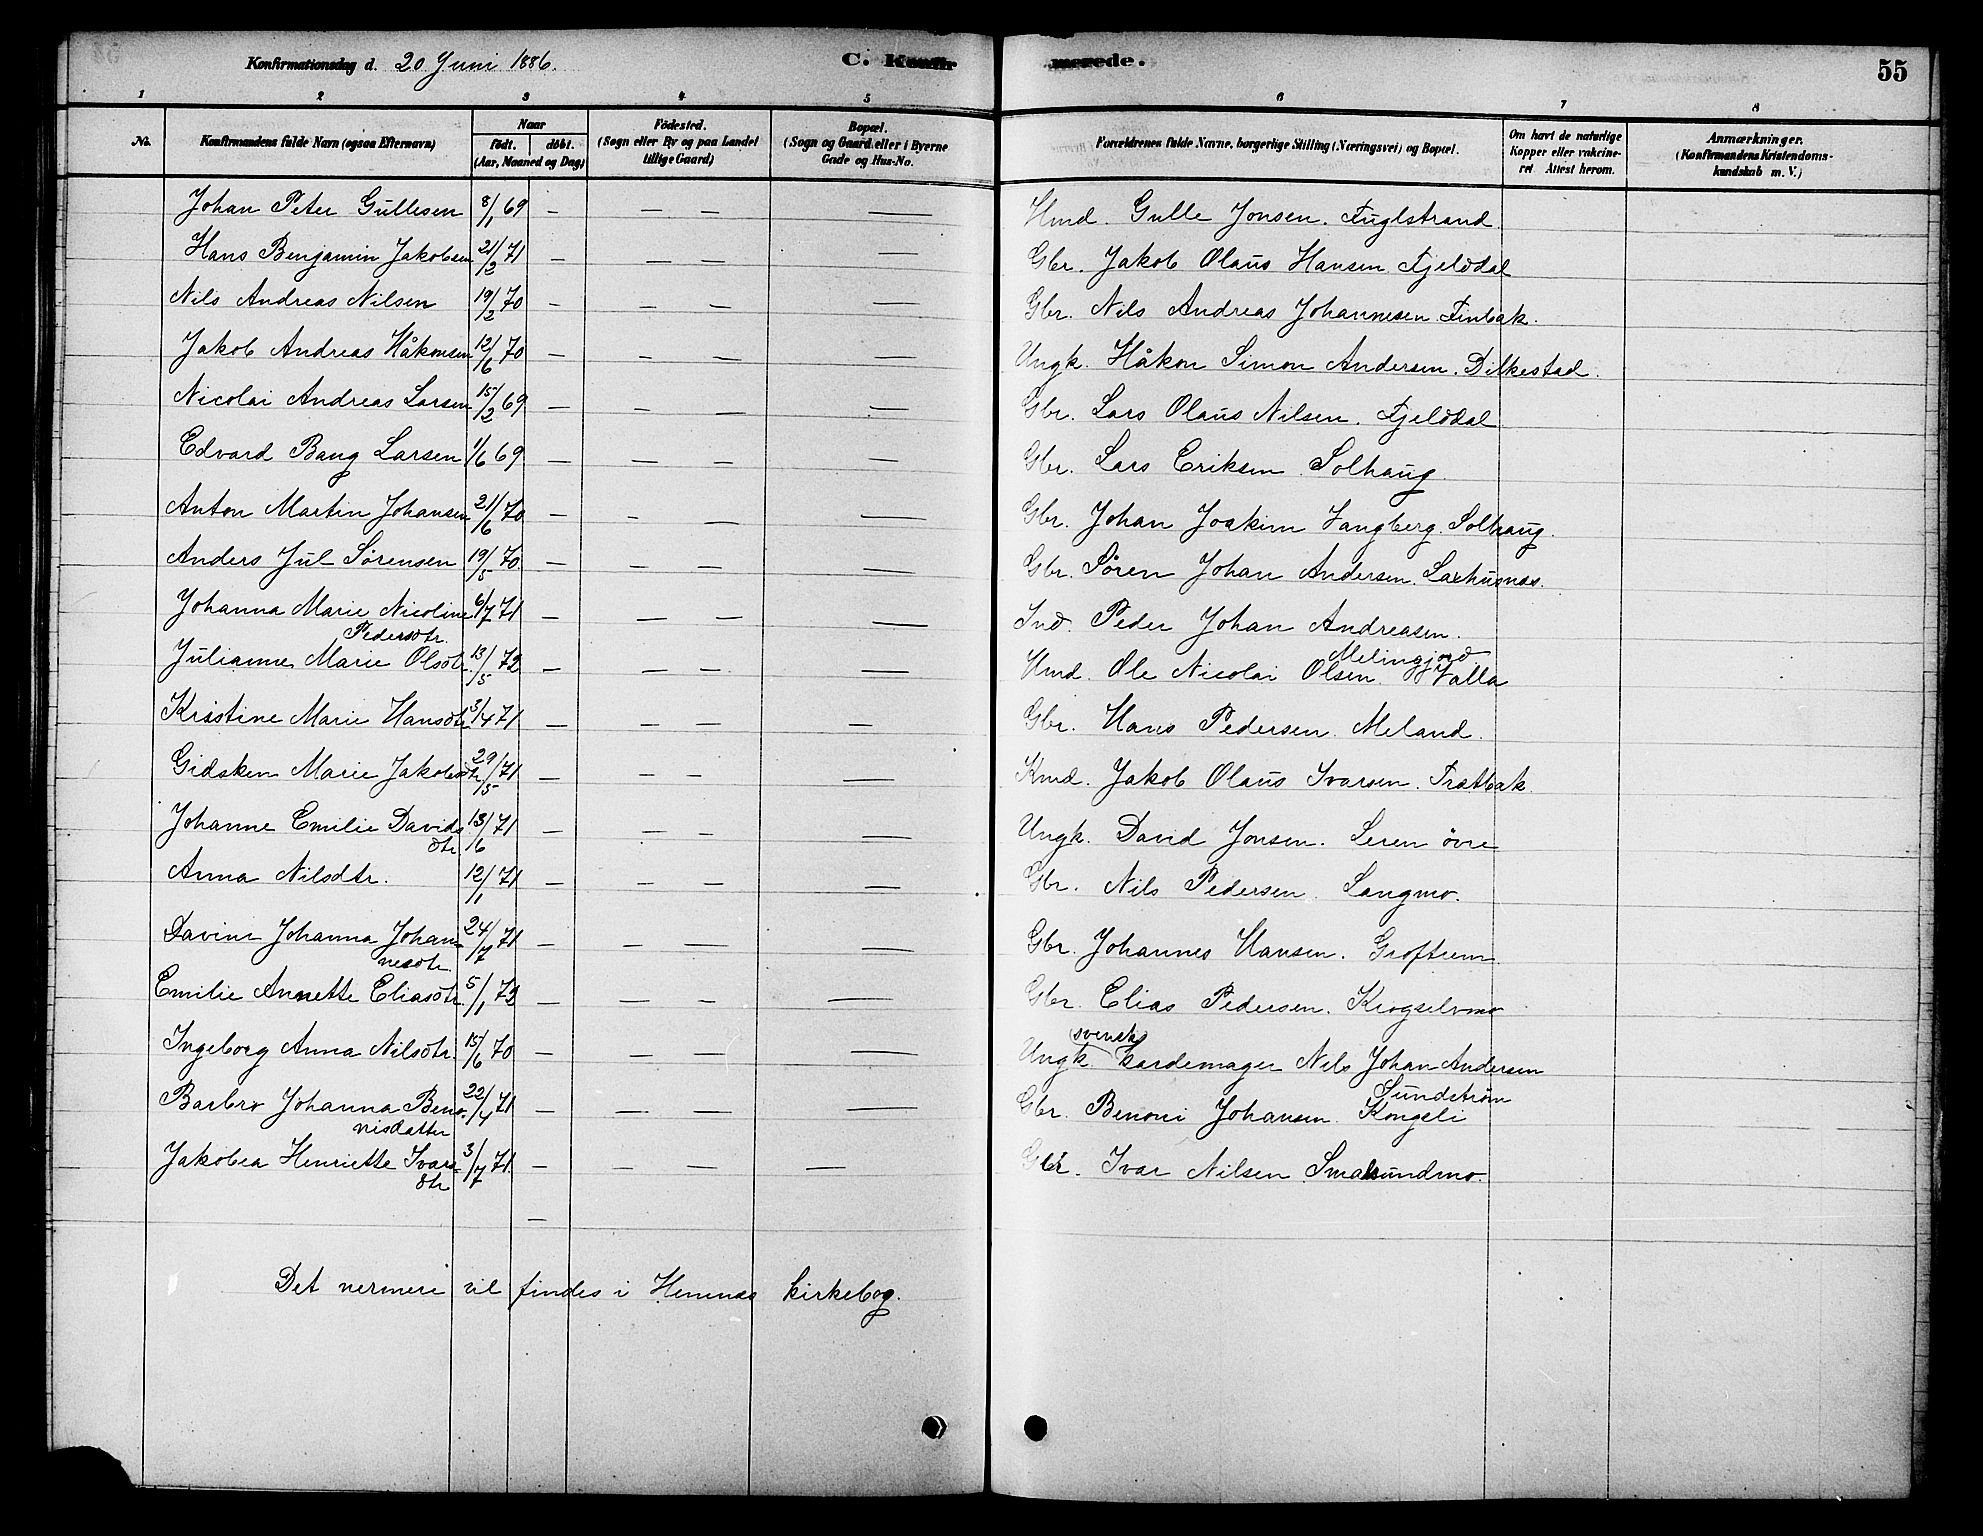 Konfirmationsdag d. 20 Juni 1886. C. Konfir merede. 55
1 2 3 4 5 6 7 8
No. Konfirmandens fulde Navn (ogsaa Efternavn) Naar født. døbt. (Aar, Maaned og Dag) Födested. (Sogn eller By og paa Landet tillige Gaard) Bopæl. (Sogn og Gaard eller i Byerne Gade og Hus-No. Forældrenes fulde Navne, borgerlige Stilling (Næringsvei) og Bopæl. Om havt de naturlige Kopper eller vakcineret Attest herom. Anmærkninger. (Konfirmandens Kristendomskundskab m. V.)
Johan Peter Gullesen 8/1 69 — — — — Hmd. Gulle Jonsen. Fuglstrand
Hans Benjamin Jakobsen 21/2 71 — — — — Gbr. Jakob Olaus Hansen Fjelddal
Nils Andreas Nilsen 19/2 70 — — — — Gbr. Nils Andreas Johannesen Finbak.
Jakob Andreas Håkonsen 12/6 70 — — — — Ungk. Håkon Simon Andersen. Dilkestad.
Nicolai Andreas Larsen 15/2 69 — — — — Gbr. Lars Olaus Nilsen. Fjelddal
Edvard Bang Larsen 1/6 69 — — — — Gbr. Lars Eriksen Solhaug.
Anton Martin Johansen 21/6 70 — — — — Gbr. Johan Joakim Zangberg. Solhaug.
Anders Jul Sørensen 19/5 70 — — — — Gbr. Sören Johan Andersen. Laxhusnæs.
Johanna Marie Nicoline 6/7 71 — — — — Ind. Peder Johan Andreasen.
Pedersdtr. Melingjord
Julianne Marie Olsdtr. 13/5 72 — — — — Hmd. Ole Nicolai Olsen. Valla
Kristine Marie Hansdtr. 3/4 71 — — — — Gbr. Hans Pedersen. Meland.
Gidsken Marie Jakobsdtr 29/5 71 — — — — Kmd. Jakob Olaus Ivarsen. Frætbak
Johanne Emilie Davids 13/6 71 — — — — Ungk. David Jonsen. Leren övre
dtr.
Anna Nilsdtr. 12/1 71 — — — — Gbr. Nils Pedersen. Langmo.
Davine Johanna Johan- 24/7 71 — — — — Gbr. Johannes Hansen. Groftrem
nesdtr.
Emilie Annette Eliasdtr. 5/1 72 — — — — Gbr. Elias Pedersen. Krogselvmo
svensk
Ingeborg Anna Nilsdtr. 15/6 70 — — — — Ungk. kardemager Nils Johan Andersen
Sundström
Barbro Johanna Beno- 22/4 71 — — — — Gbr. Benoni Johansen. Kongeli
nisdatter
Jakobea Henriette Ivars- 3/7 71 — — — — Gbr. Ivar Nilsen Smalsundmo.
dtr
—
Det nermere vil findes i Hemnæs kirkebog.